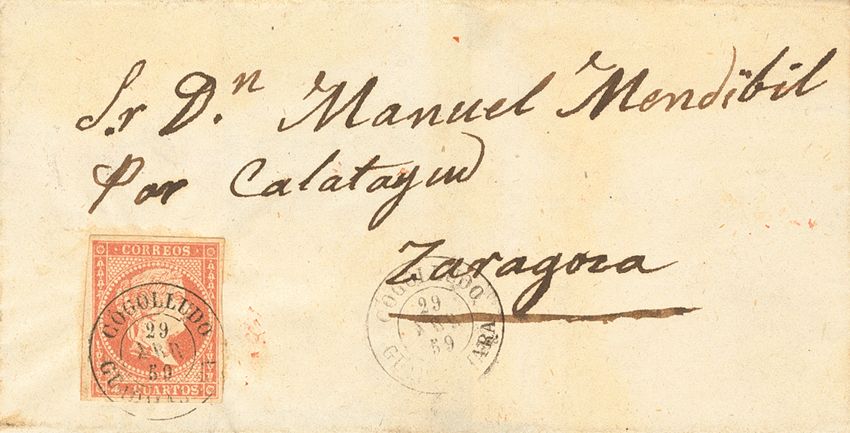 Sr. D.n Manuel Mendibil
Por Calatayud
Zaragoza
CORREOS
COGOLLUDO
29
59
CUARTOS
COGOLLUDO
29
59